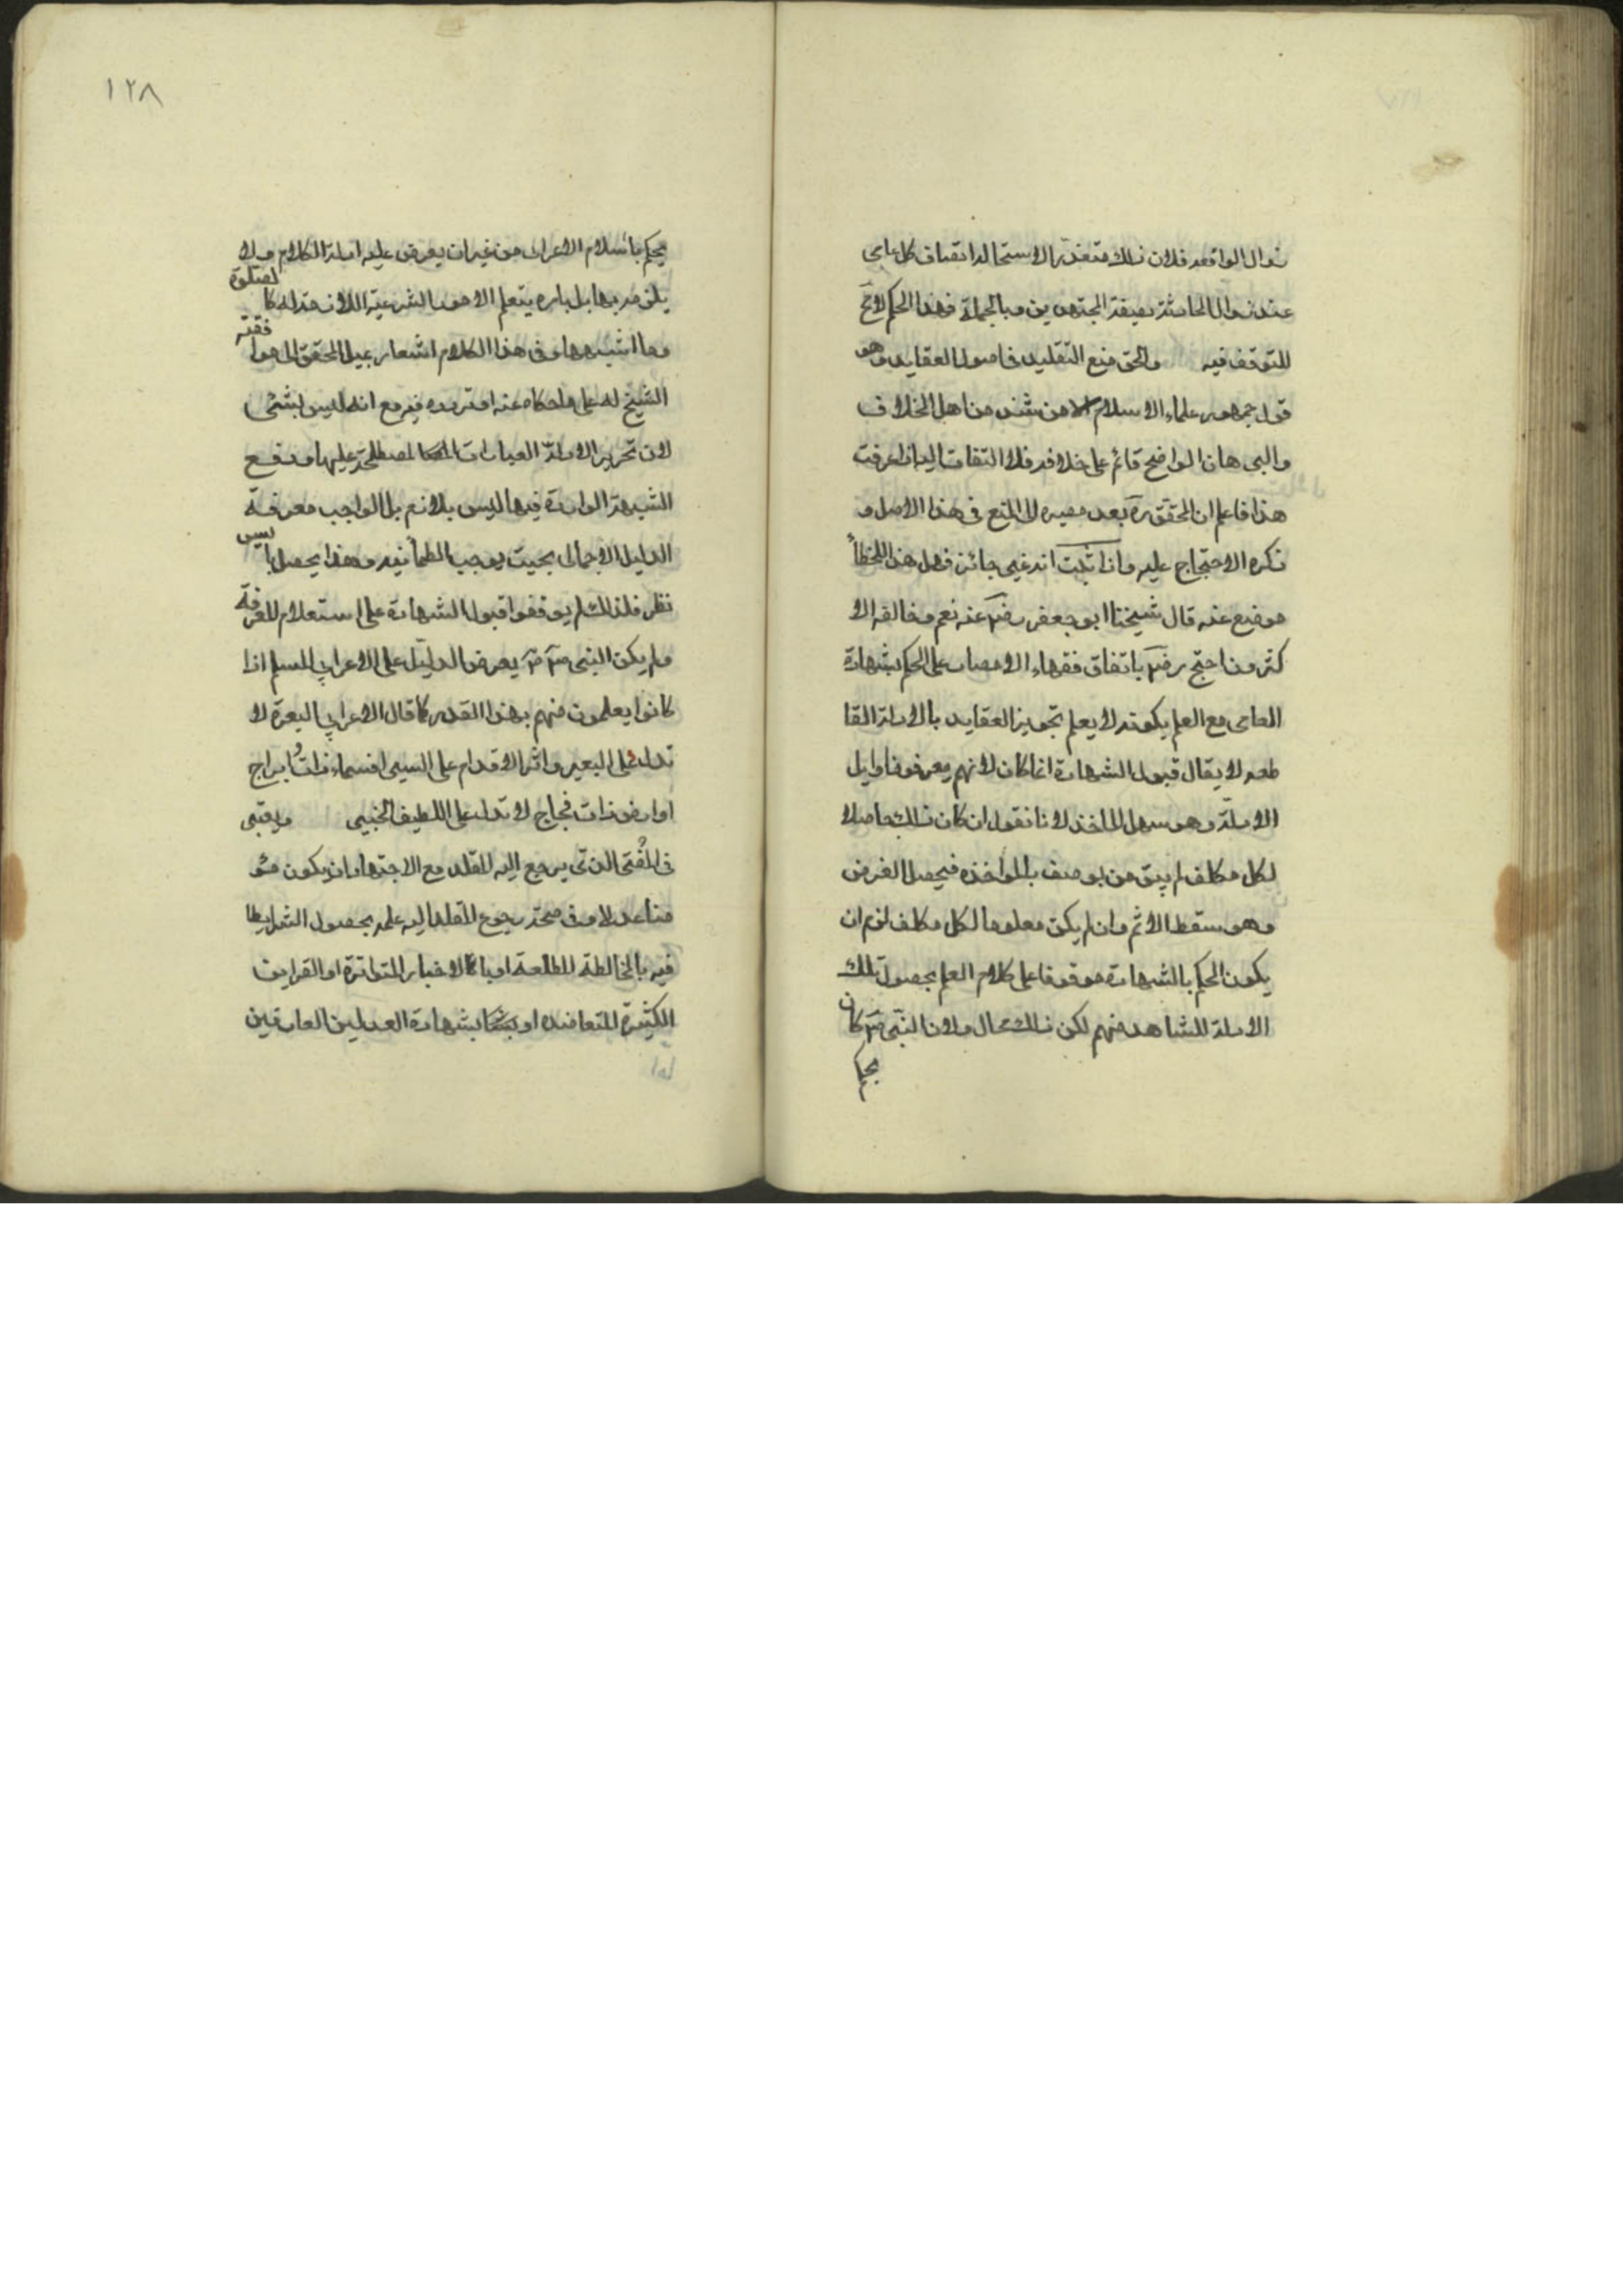 نزول الواقعة فلان ذلك متعذر لاستحالة اتصاف كل عامى
عند نزول الحادثة بصفة المجتهدين وبالجملة فهذا الحكم لا مج
للتوقف فيه والحق منع التقليد فى اصول العقايد وهو
قول جمهور علماء الاسلام الا من شذ من اهل الخلاف
والبرهان الواضح قائم على خلافه فلا التفات اليه اذا عرفت
هذا فاعلم ان المحقق ره بعد مصيره الى المنع فى هذا الاصل و
ذكره الاحتجاج عليه واذا ثبت انه غير جائز فهل هذا الخطأ
موضع عنه قال شيخنا ابو جعفر رض عنه نعم وخالفه الا
كثرون احتج رض باتفاق فقهاء الامصار على الحكم بشهادة
العامى مع العلم بكونه لا يعلم تجويز العقايد بالادلة القا
طعه لا يقال قبول الشهادة انما كان لانهم يعرفون اوايل
الادلة وهو سهل الماخذ لانا نقول ان كان ذلك حاصلا
لكل مكلف لم يبق من يوصف بالمواخذه فيحصل الغرض
وهو سقط الاثم وان لم يكن معلوما لكل مكلف لزم ان
يكون الحكم بالشهادة موقوفا على كلام العلم بحصول تلك
الادلة للشاهد منهم لكن ذلك محال ولان النبى ص كان
يحكم
١٢٨
يحكم باسلام الاعرابى من غير ان يعرض عليه ادلة الكلام ولا
يلزمه بها بل يامره بتعلم الامور الشرعية اللازمة له كالصلوة
وما اشبهها وفى هذا الكلام اشعار بميل المحقق الى موافقة
الشيخ له على ما حكاه عنه او تردده فيه مع انه ليس بشئ
لان تحرير الادلة العبارات المصطلحة عليها ودفع
الشبهة الواردة فيها ليس بلازم بل الواجب معرفة
الدليل الاجمالى بحيث يوجب الطمأنينه وهذا يحصل بايسر
نظر فلذلك لم يوقفوا قبول الشهادة على استعلام المعرفة
ولم يكن النبى ص يعرض الدليل على الاعرابى المسلم اذا
كانوا يعلمون منهم بهذا القدر كما قال الاعرابى البعرة لا
تدل على البعير واثر الاقدام على السير افسماء ذات ابراج
او ارض ذات فجاج لا تدل على اللطيف الخبير ويعتبر
فى المفتى الذى يرجع اليه المقلد مع الاجتهاد ان يكون مؤ
منا عدلا وفى صحة رجوع المقلد اليه علمه بحصول الشرايط
فيه بالمخالطة المطلعة او بالاخبار المتواترة او القراين
الكثيرة المتعاضده او بشهادة العدلين العارفين